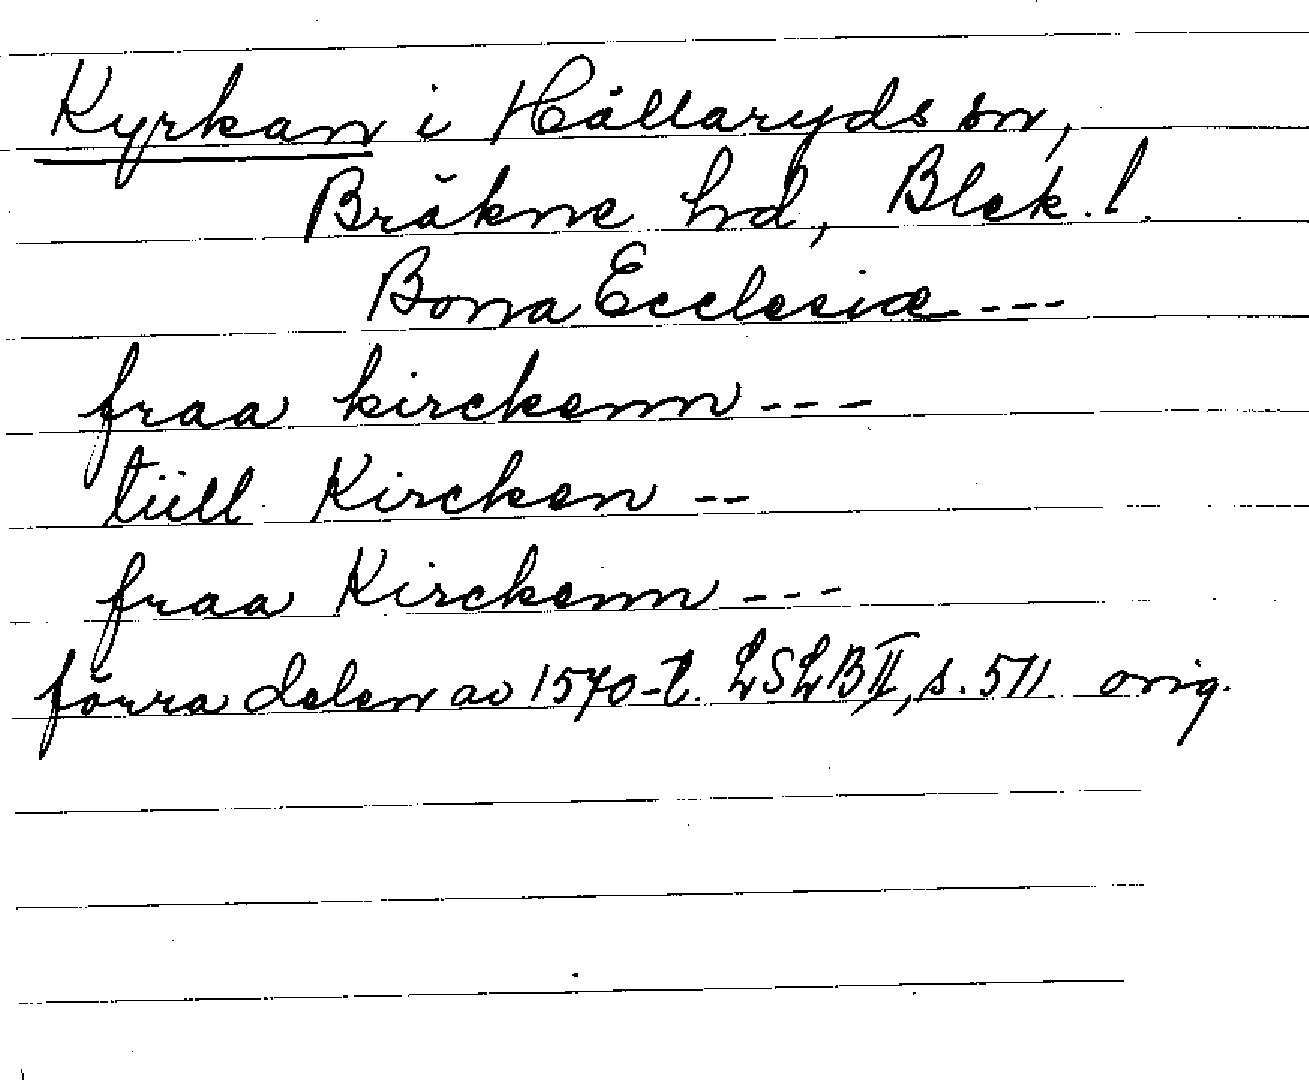 Kyrkan i Hällaryds sn,
Bräkne hd, Blek. l.
Bona Ecclesiæ ---
fraa kirckenn ---
tiill Kircken --
fraa Kirckenn ---
förra delen av 1570-t. LSLB II, s. 511 orig.